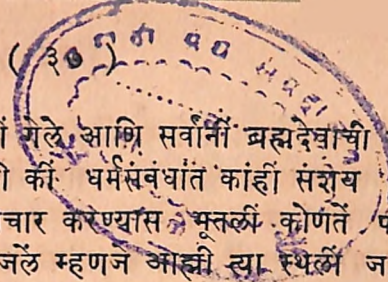 ( ३७ )
गेले, आणि सर्वांनीं ब्रह्मदेवाची
कीं धर्मसंबंधांत कांहीं संशय
चार करण्यास भूतलीं कोणतें
जलें म्हणजे आह्मी त्या स्थलीं ज